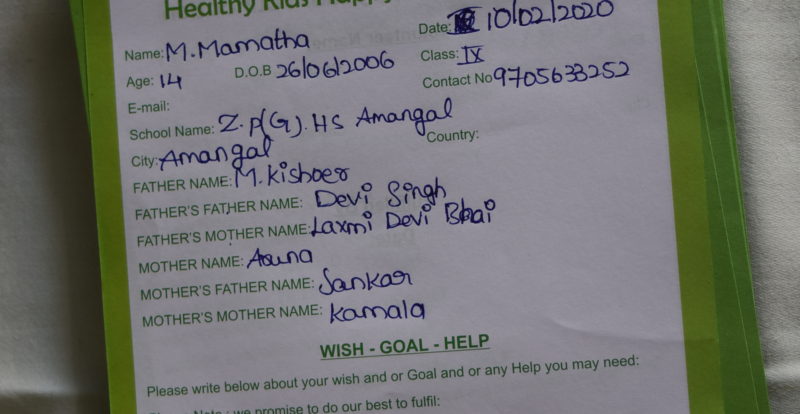 Healthy Kids Happy
Date: 10/02/2020
Name: M. Mamatha
Class: IX
Age: 14 D.O.B 26/06/2006
Contact No 9705633252
E-mail:
School Name: Z.P(G).HS Amangal
City: Amangal Country:
FATHER NAME: M. Kishoer
FATHER'S FATHER NAME: Devi Singh
FATHER'S MOTHER NAME: Laxmi Devi Bhai
MOTHER NAME: Aruna
MOTHER'S FATHER NAME: Sankar
MOTHER'S MOTHER NAME: Kamala
WISH - GOAL - HELP
Please write below about your wish and or Goal and or any Help you may need:
Note : we promise to do our best to fulfil: